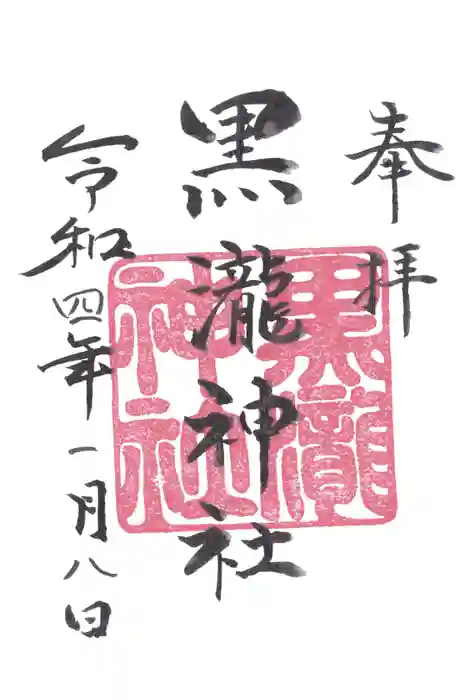 奉拝
黒瀧神社
令和四年一月八日
黒瀧
神社